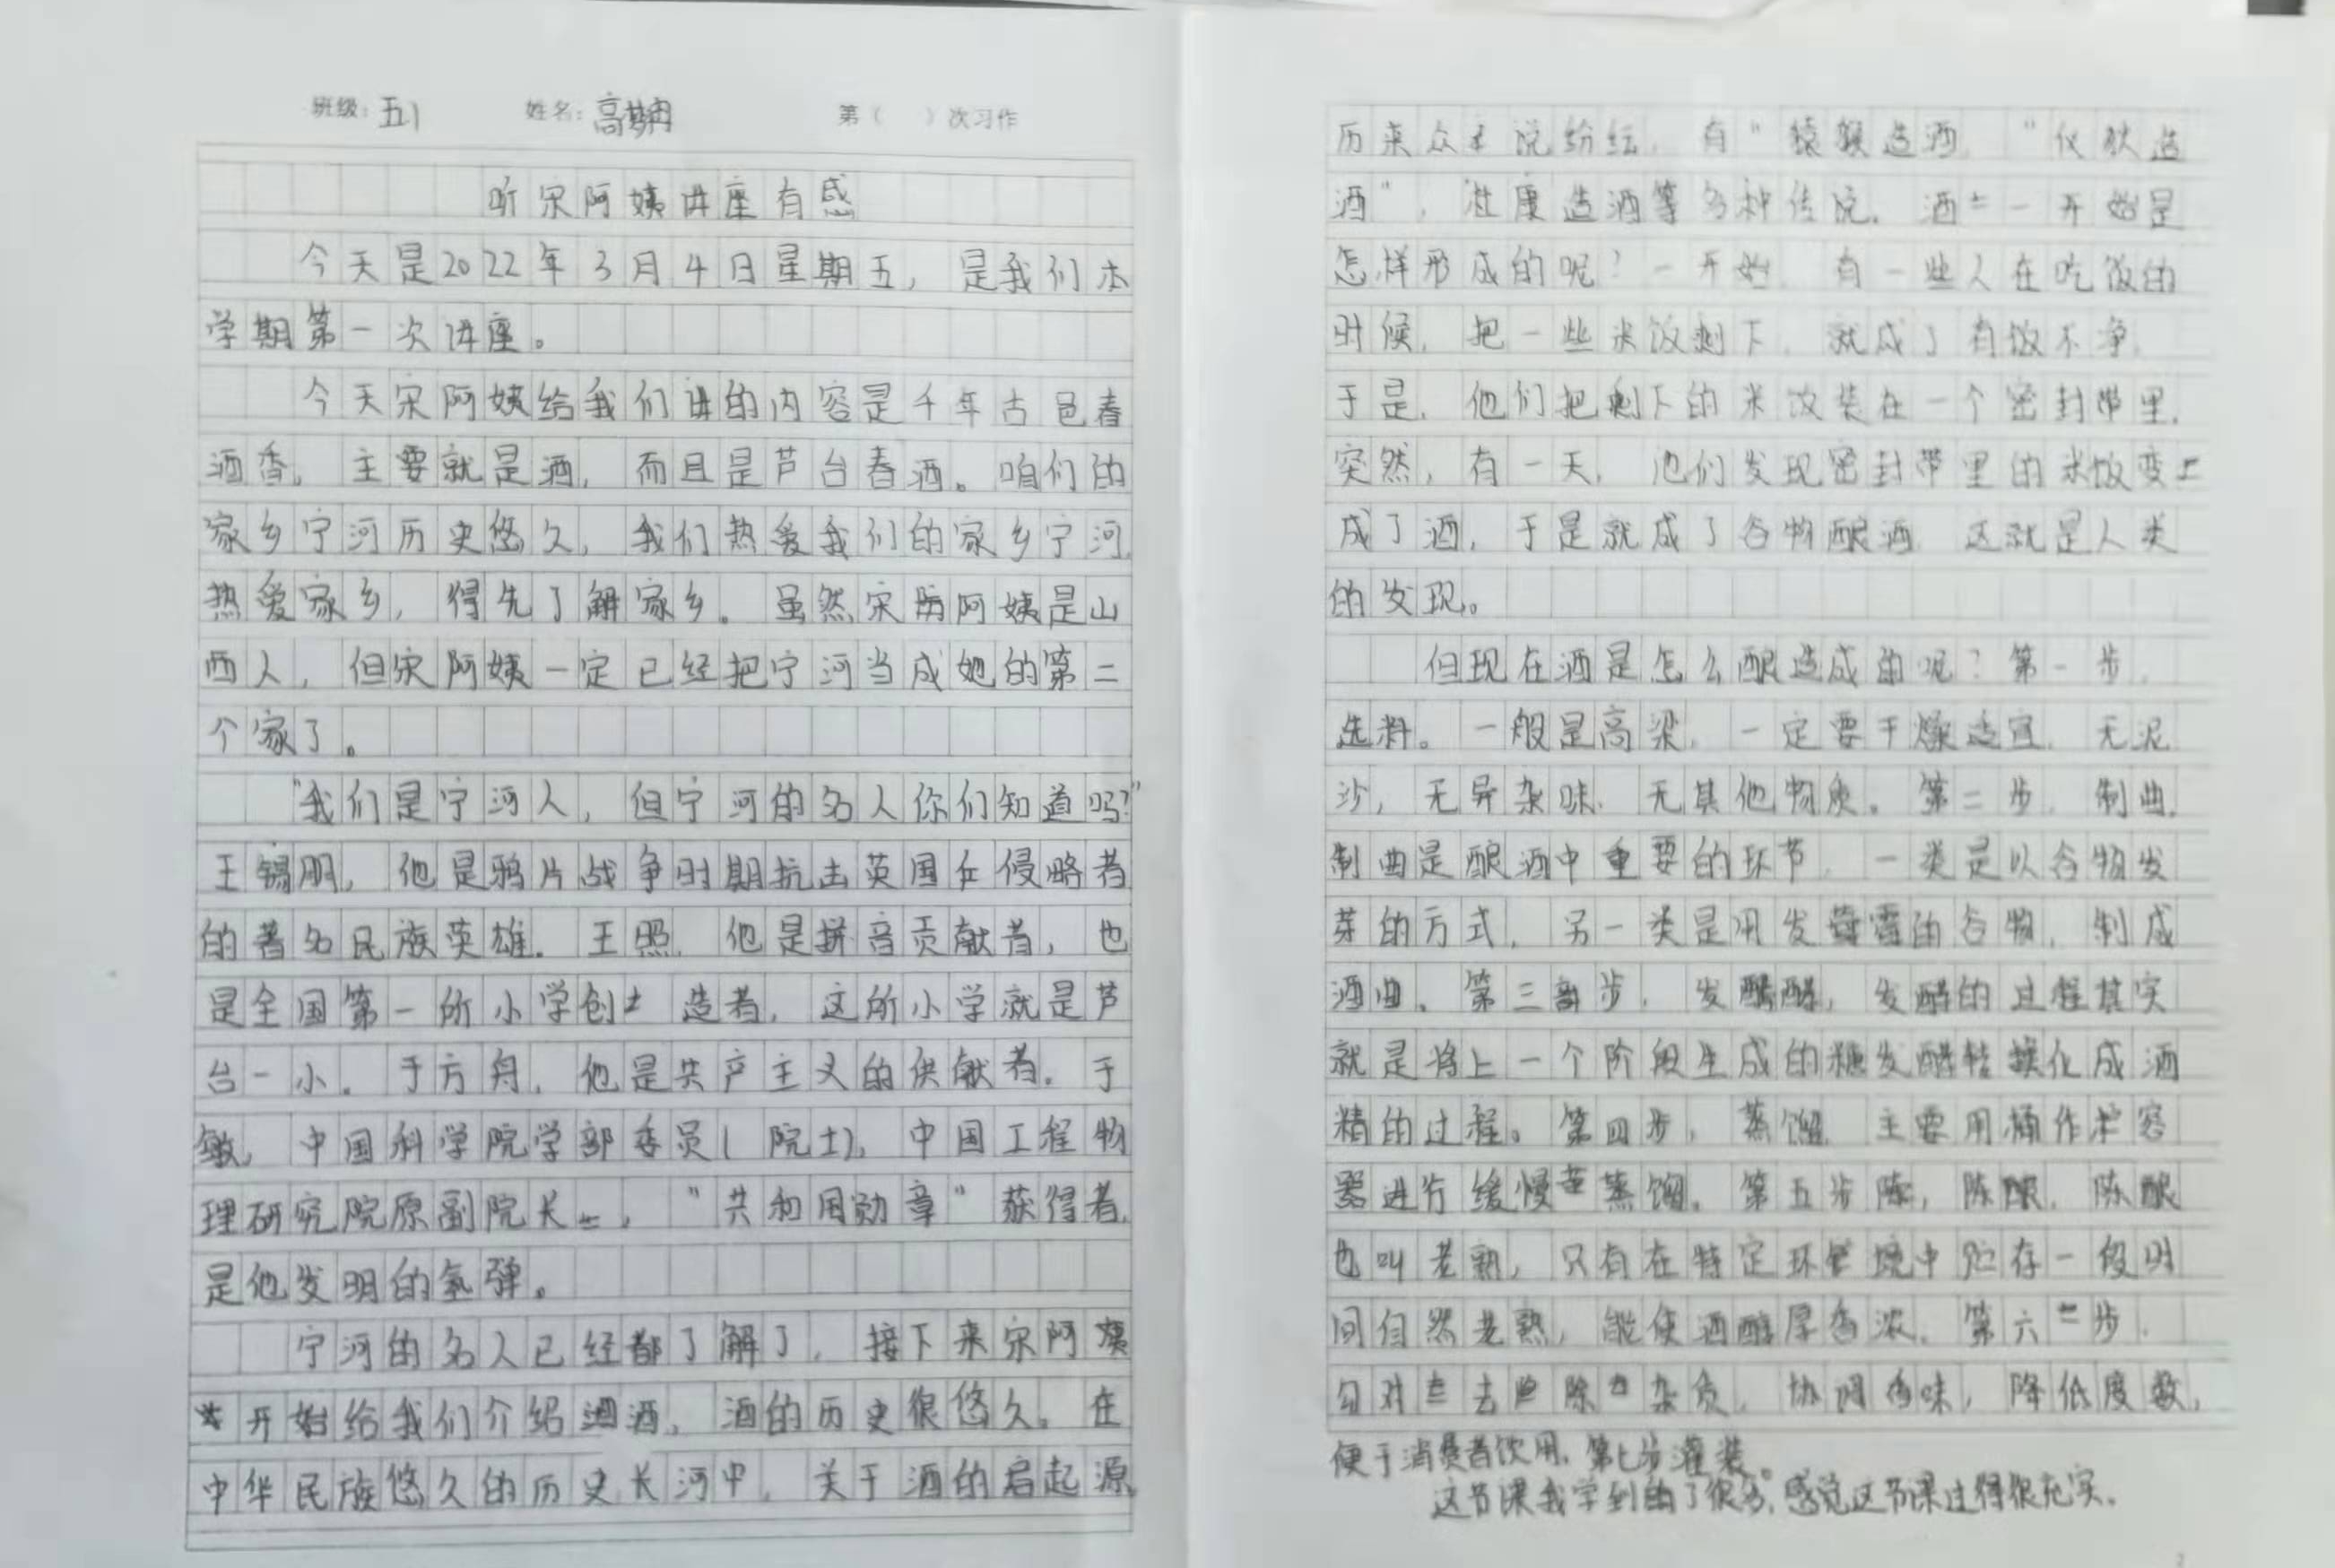 班级：五1 姓名：高 第（ ）次习作
听宋阿姨讲座有感
今天是2022年3月4日星期五，是我们本
学期第一次讲座。
今天宋阿姨给我们讲的内容是千年古邑春
酒香。主要就是酒，而且是芦台春酒。咱们的
家乡宁河历史悠久，我们热爱我们的家乡宁河，
热爱家乡，得先了解家乡。虽然宋阿姨是山
西人，但宋阿姨一定已经把宁河当成她的第二
个家了。
“我们是宁河人，但宁河的名人你们知道吗？”
王锡朋，他是鸦片战争时期抗击英国侵略者
的著名民族英雄。王照，他是拼音贡献者，也
是全国第一所小学创造者，这所小学就是芦
台一小。于方舟，他是共产主义的供献者。于
敏，中国科学院学部委员（院士），中国工程物
理研究院原副院长，“共和国勋章”获得者，
是他发明的氢弹。
宁河的名人已经都了解了，接下来宋阿姨
开始给我们介绍酒，酒的历史很悠久。在
中华民族悠久的历史长河中，关于酒的起源
历来众说纷纭，有“猿猴造酒，“仪狄造
酒”，杜康造酒等多种传说。酒一开始是
怎样形成的呢？一开始，有一些人在吃饭的
时候，把一些米饭剩下，就成了有饭不净，
于是，他们把剩下的米饭装在一个密封带里，
突然，有一天，他们发现密封带里的米饭变
成了酒，于是就成了谷物酿酒，这就是人类
的发现。
但现在酒是怎么酿造成的呢？第一步，
选料。一般是高梁，一定要干燥适宜，无泥
沙，无异杂味，无其他物质。第二步，制曲，
制曲是酿酒中重要的环节，一类是以谷物发
芽的方式，另一类是用发霉的谷物，制成
酒曲。第三步，发酵，发酵的过程其实
就是将上一个阶段生成的糖发酵转化成酒
精的过程。第四步，蒸馏，主要用桶作容
器进行缓慢蒸馏。第五步，陈酿，陈酿
也叫老熟，只有在特定环境中贮存一段时
间自然老熟，能使酒醇厚香浓。第六步，
勾对去除杂质，协调香味，降低度数，
便于消费者饮用，第七步灌装。
这节课我学到的了很多，感觉这节课过得很充实。
2